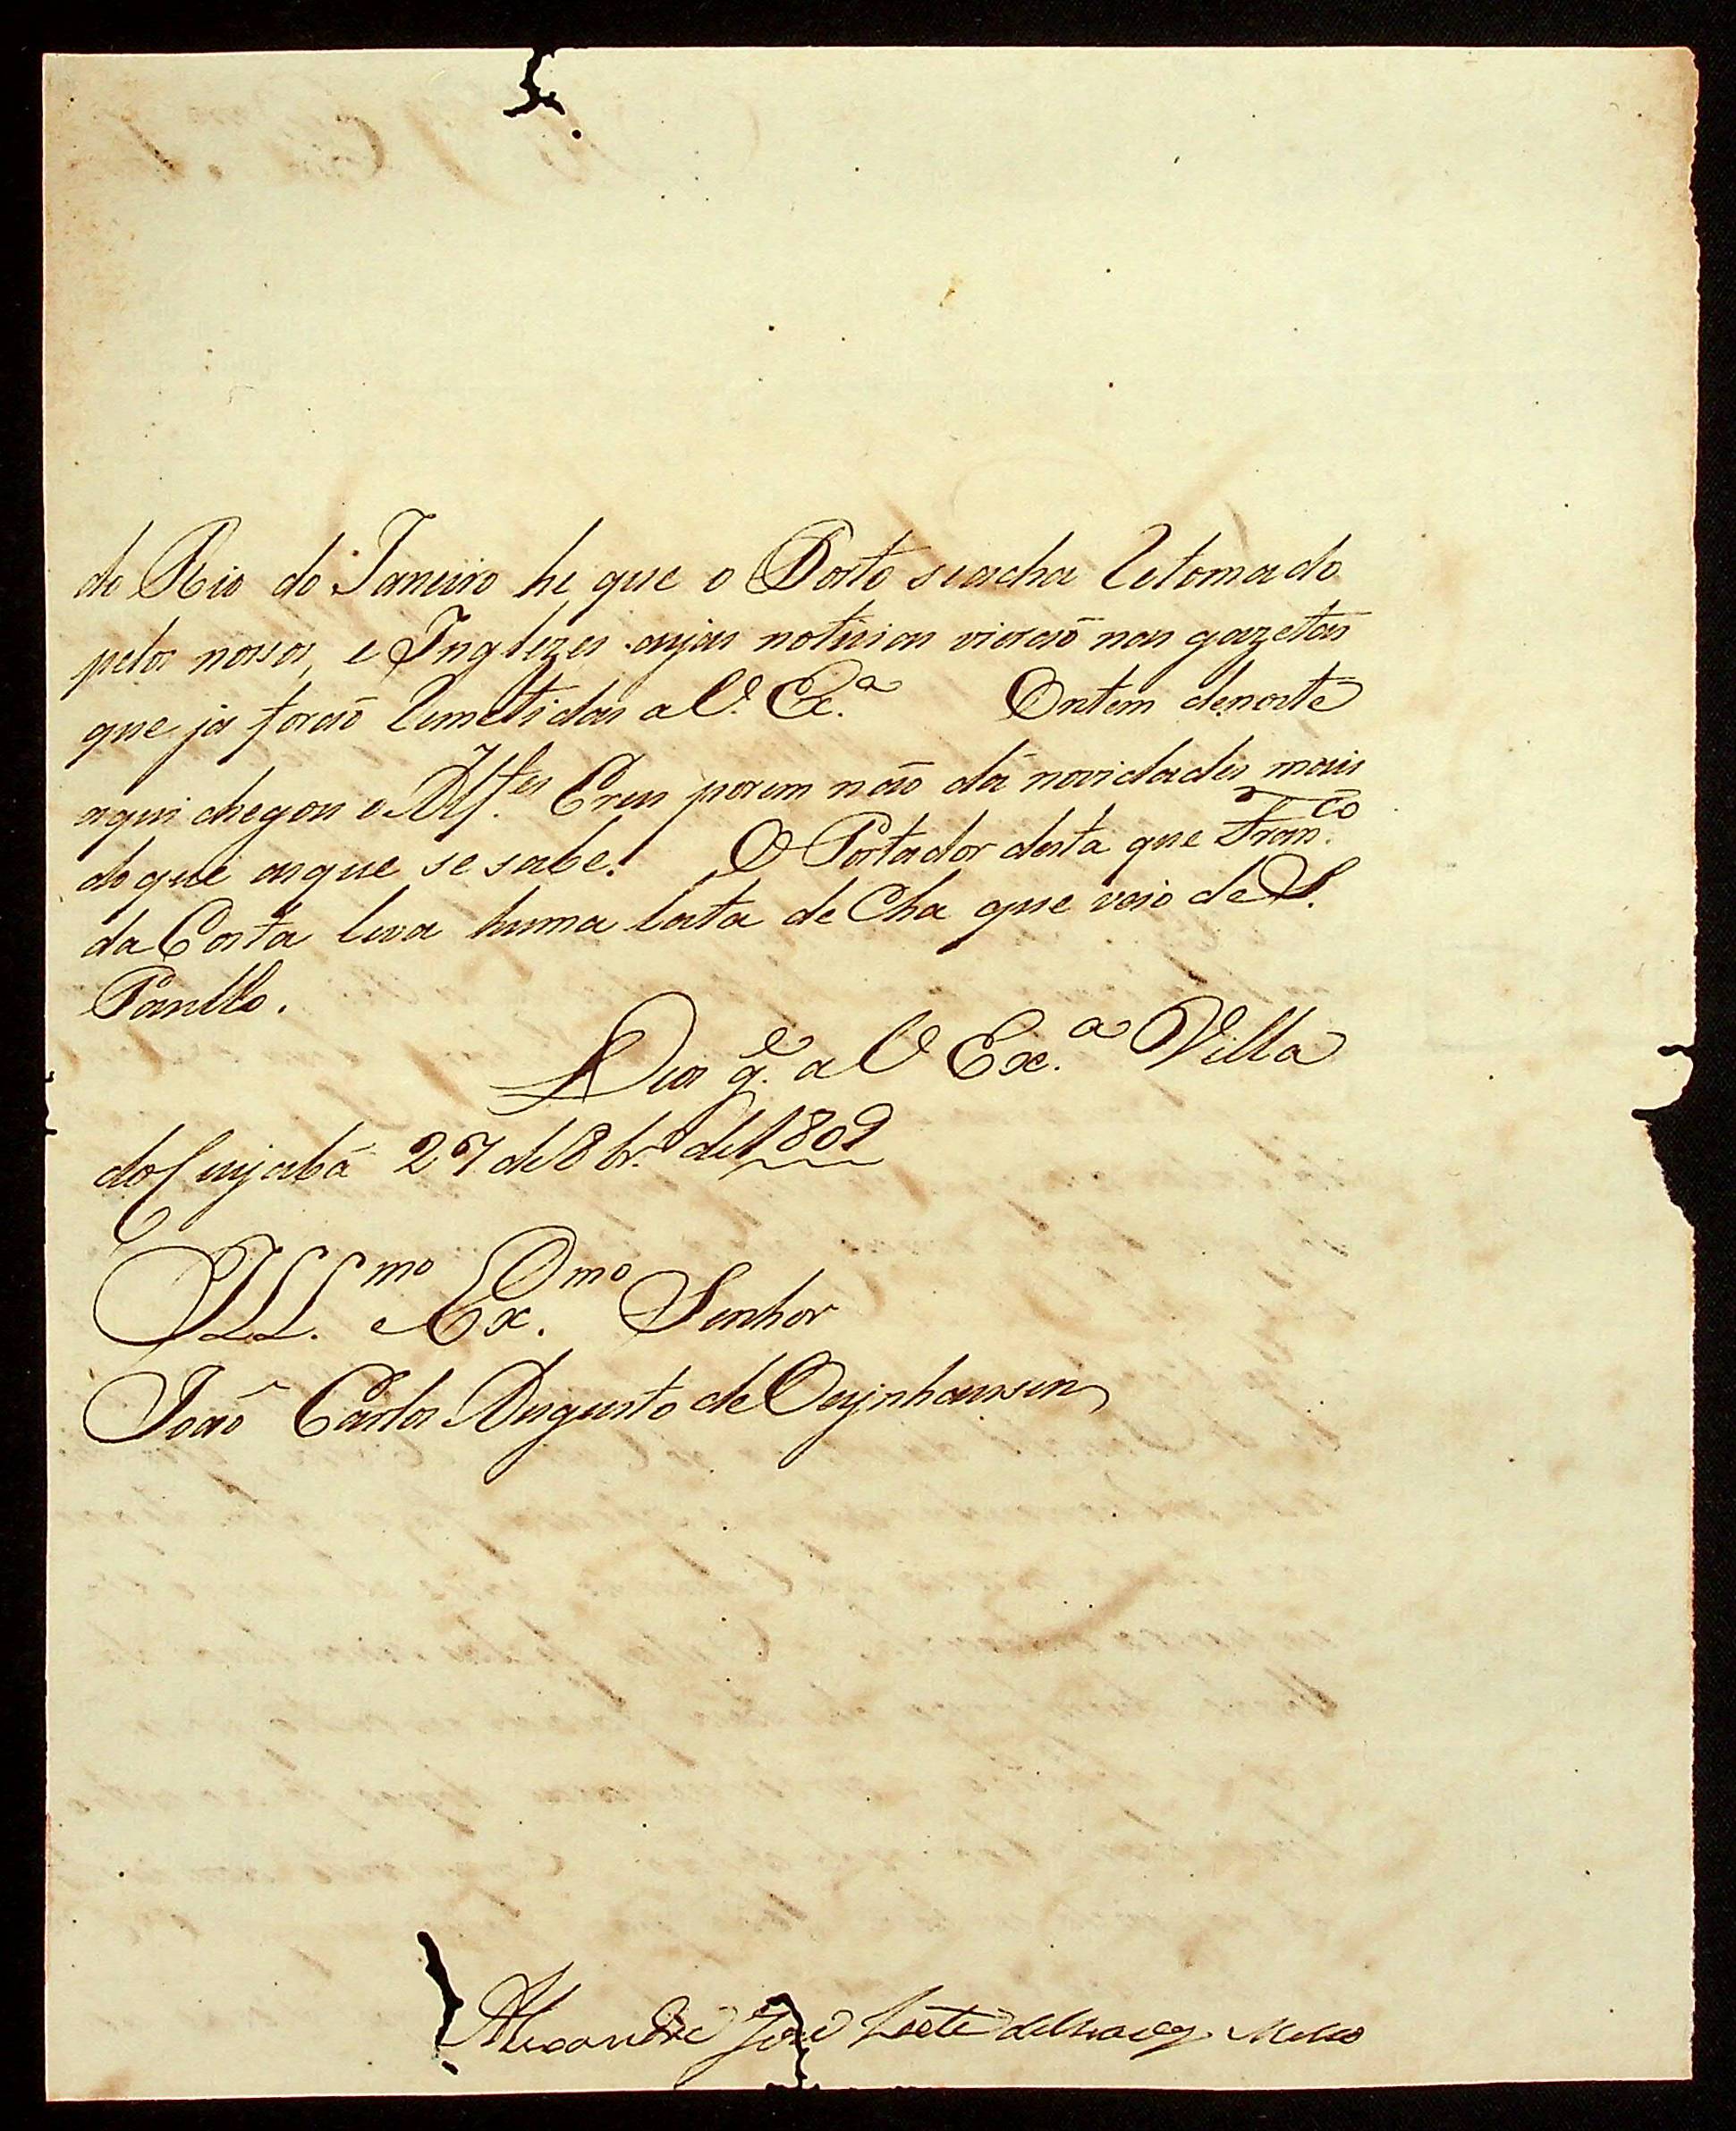 do Rio do Janeiro he que o Porto se acha Retomado
pelos nosos, e Inglezes cujas noticias vieraõ nas gazetas
que ja foraõ Remetidas a V. Ex.ª Ontem denoite
aqui chegou o Alf.es Cruz porem naõ dá novidades mais
doque asque se sabe. O Portador desta que Fran.co
da Costa leva huma lata de Cha que veio de S.
Paullo.
Deos g.e a V Ex.ª Villa
do Cuyabá 27 de 8br.o de 1809
Ill.mo e Ex.mo Senhor
Joaõ Carlos Augusto de Oeynhausen
Alexandre Joze Leite de Mello